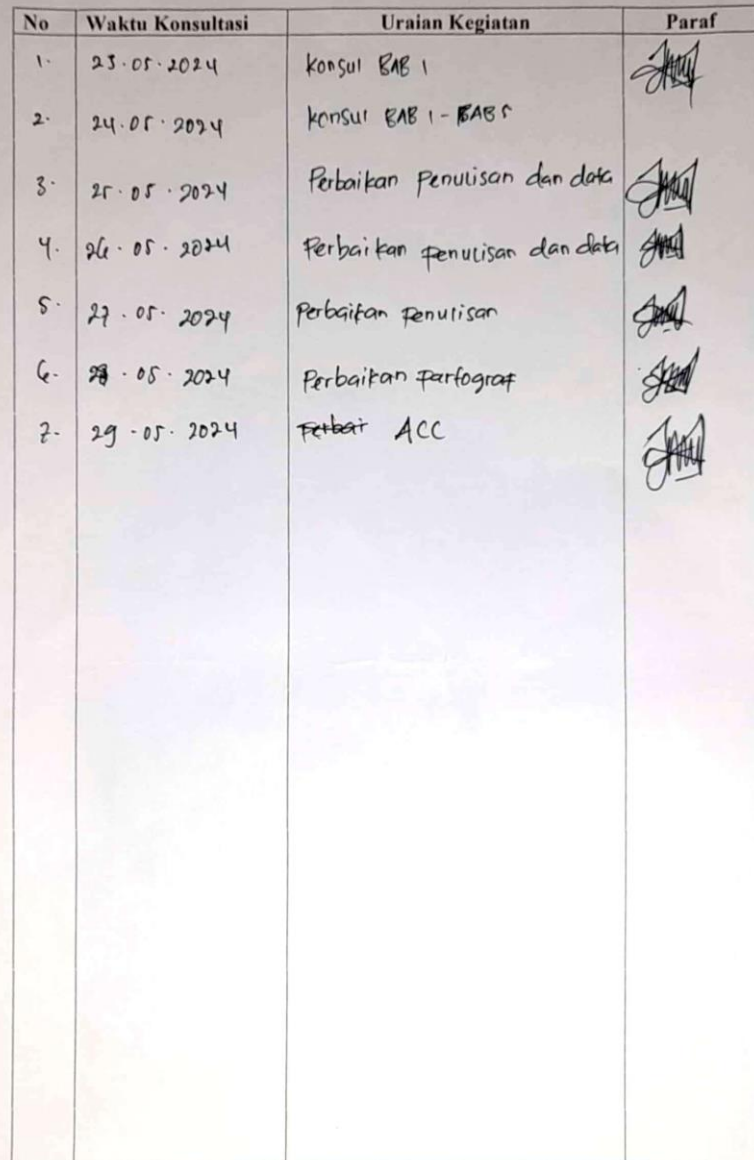 No Waktu Konsultasi Uraian Kegiatan Paraf
1. 23.05.2024 Konsul BAB 1
2. 24.05.2024 Konsul BAB 1 - BAB 5
3. 25.05.2024 Perbaikan Penulisan dan data
4. 26.05.2024 Perbaikan Penulisan dan data
5. 27.05.2024 Perbaikan Penulisan
6. 28.05.2024 Perbaikan Partograf
7. 29.05.2024 Perbai ACC